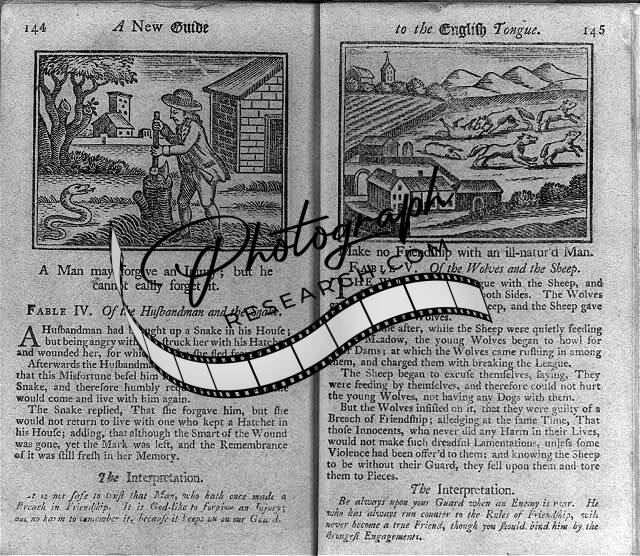 144 A New Guide
A Man may forgive an Injury; but he
cannot easily forget it.
FABLE IV. Of the Husbandman and the Snake.
A Husbandman had brought up a Snake in his House;
but being angry with struck her with his Hatchet
and wounded her, for which she fled
Afterwards the Husbandman
that this Misfortune befel him
Snake, and therefore humbly
would come and live with him again.
The Snake replied, That she forgave him, but she
would not return to live with one who kept a Hatchet in
his House; adding, that although the Smart of the Wound
was gone, yet the Mark was left, and the Remembrance
of it was still fresh in her Memory.
The Interpretation.
It is not safe to trust that Man, who hath once made a
Breach in Friendship. It is God-like to forgive an Injury;
but no harm to remember it, because it keeps us on our Guard.
to the English Tongue. 145
Make no Friendship with an ill-natur'd Man.
FABLE V. Of the Wolves and the Sheep.
THE with the Sheep, and
both Sides. The Wolves
Sheep, and the Sheep gave
Wolves.
after, while the Sheep were quietly feeding
Meadow, the young Wolves began to howl for
Dams; at which the Wolves came rushing in among
them, and charged them with breaking the League.
The Sheep began to excuse themselves, saying, They
were feeding by themselves, and therefore could not hurt
the young Wolves, not having any Dogs with them.
But the Wolves insisted on it, that they were guilty of a
Breach of Friendship; alledging at the same Time, That
those Innocents, who never did any Harm in their Lives,
would not make such dreadful Lamentations, unless some
Violence had been offer'd to them; and knowing the Sheep
to be without their Guard, they fell upon them and tore
them to Pieces.
The Interpretation.
Be always upon your Guard when an Enemy is near. He
who has always run counter to the Rules of Friendship, will
never become a true Friend, though you should bind him by the
strongest Engagements.
Photograph
RESEARCH